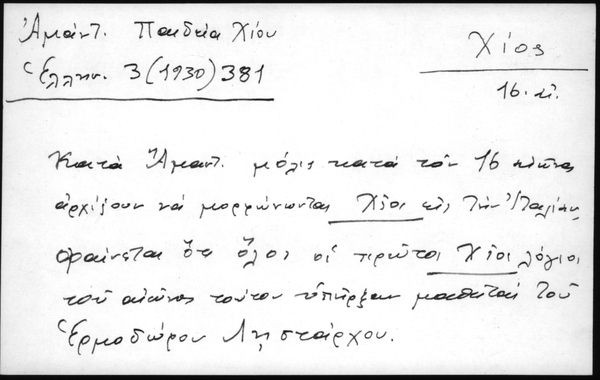 Ἀμάντ. Παιδεία Χίου
Ἑλλην. 3 (1930) 381
Χίος
16. αἰ.
Κατὰ Ἄμαντ. μόλις κατὰ τὸν 16 αἰῶνα
ἀρχίζουν νὰ μορφώνωνται Χῖοι εἰς τὴν Ἰταλίαν,
φαίνεται ὅτι ὅλοι οἱ πρῶτοι Χῖοι λόγιοι
τοῦ αἰῶνος τούτου ὑπῆρξαν μαθηταὶ τοῦ
Ἑρμοδώρου Λῃστάρχου.